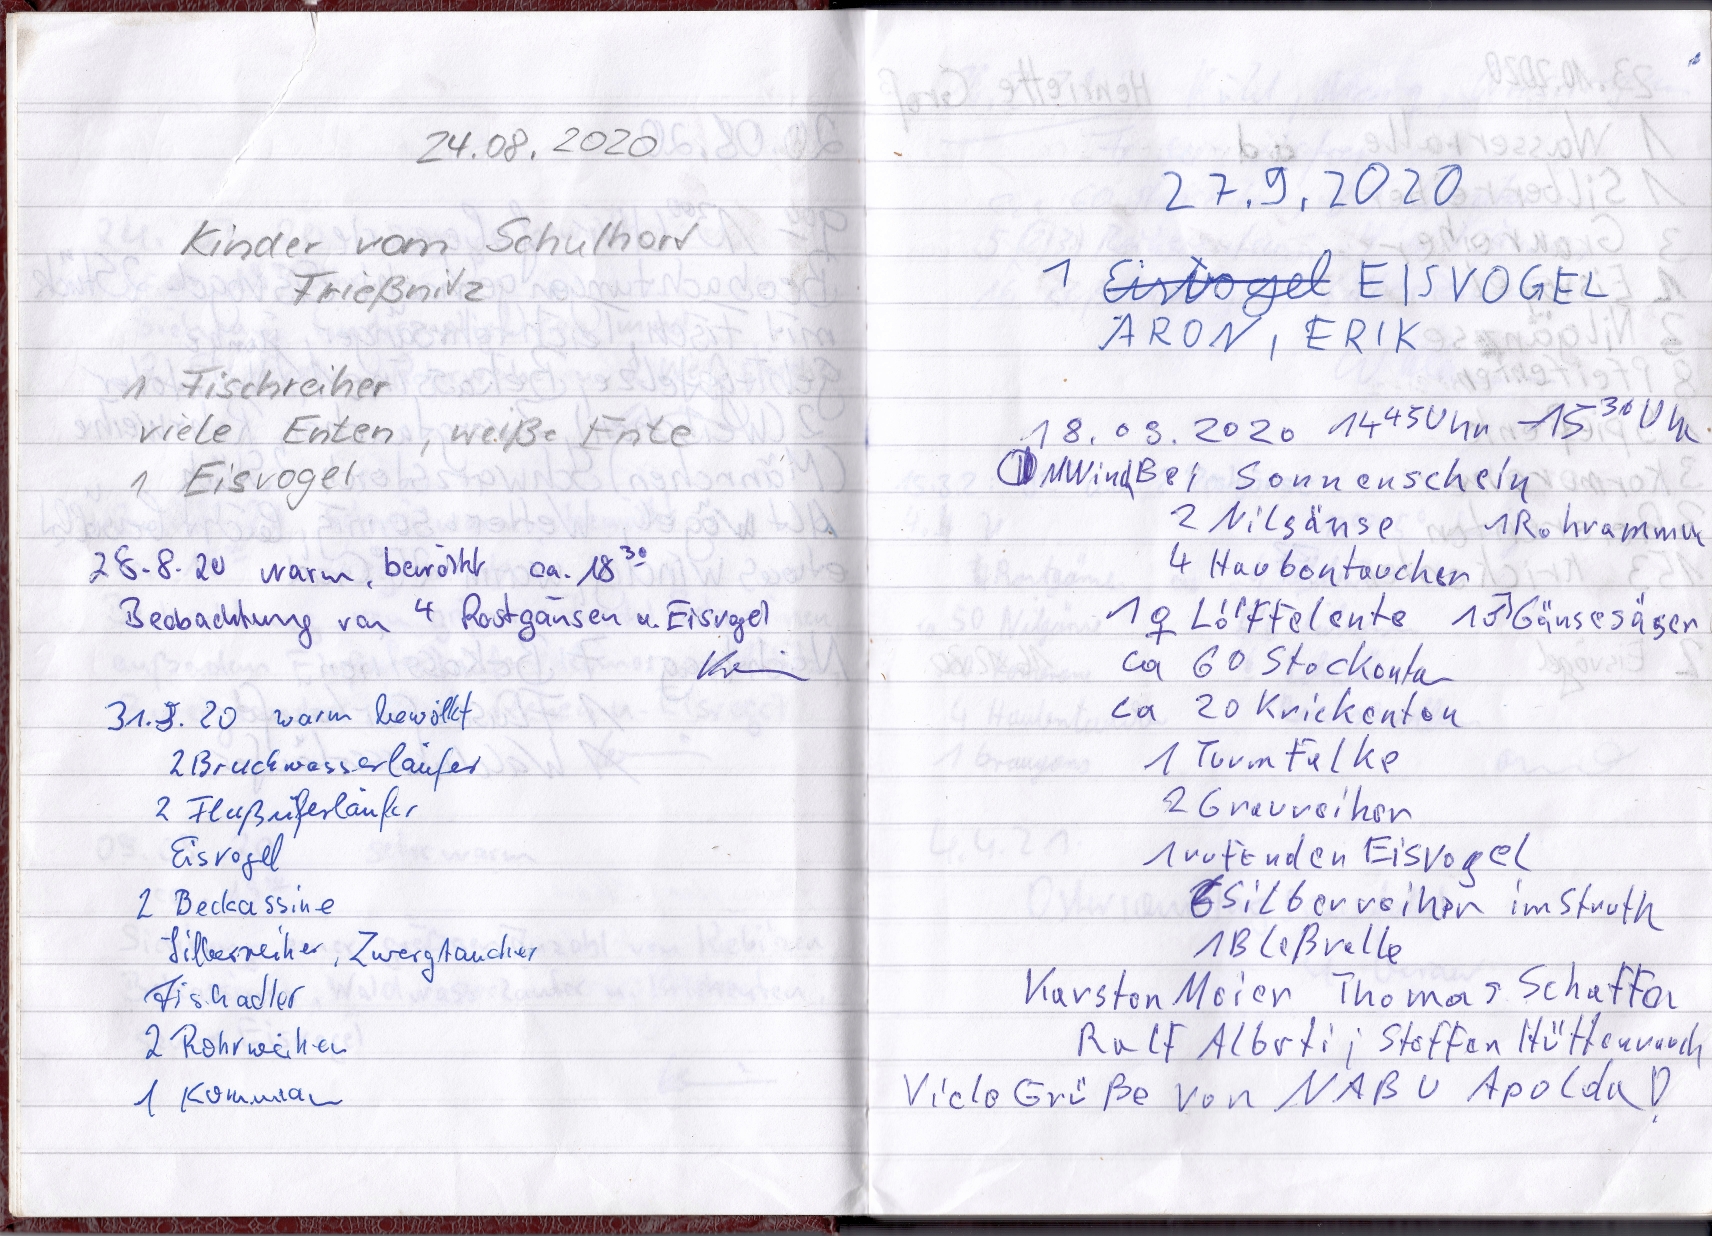 24.08.2020
Kinder vom Schulhort
Frießnitz
1 Fischreiher
viele Enten, weiße Ente
1 Eisvogel
28.8.20 warm, bewölkt ca. 18³⁰
Beobachtung von 4 Rostgänsen u. Eisvogel
31.8.20 warm bewölkt
2 Bruchwasserläufer
2 Flußuferläufer
Eisvogel
2 Beckassine
Silberreiher, Zwergtaucher
Fischadler
2 Rohrweihen
1 Kormoran
27.9.2020
1 Eisvogel EISVOGEL
ARON, ERIK
18.09.2020 14⁴⁵Uhr – 15³⁰Uhr
Wind Bei Sonnenschein
2 Nilgänse 1 Rohrammer
4 Haubentaucher
1 ♀ Löffelente 1 Gänsesäger
ca 60 Stockenten
ca 20 Krickenten
1 Turmfalke
2 Graureiher
1 rufenden Eisvogel
6 Silberreiher im Struth
1 Bleßralle
Karsten Meier Thomas Schaffer
Ralf Alberti; Steffen Hüttenrauch
Viele Grüße von NABU Apolda!